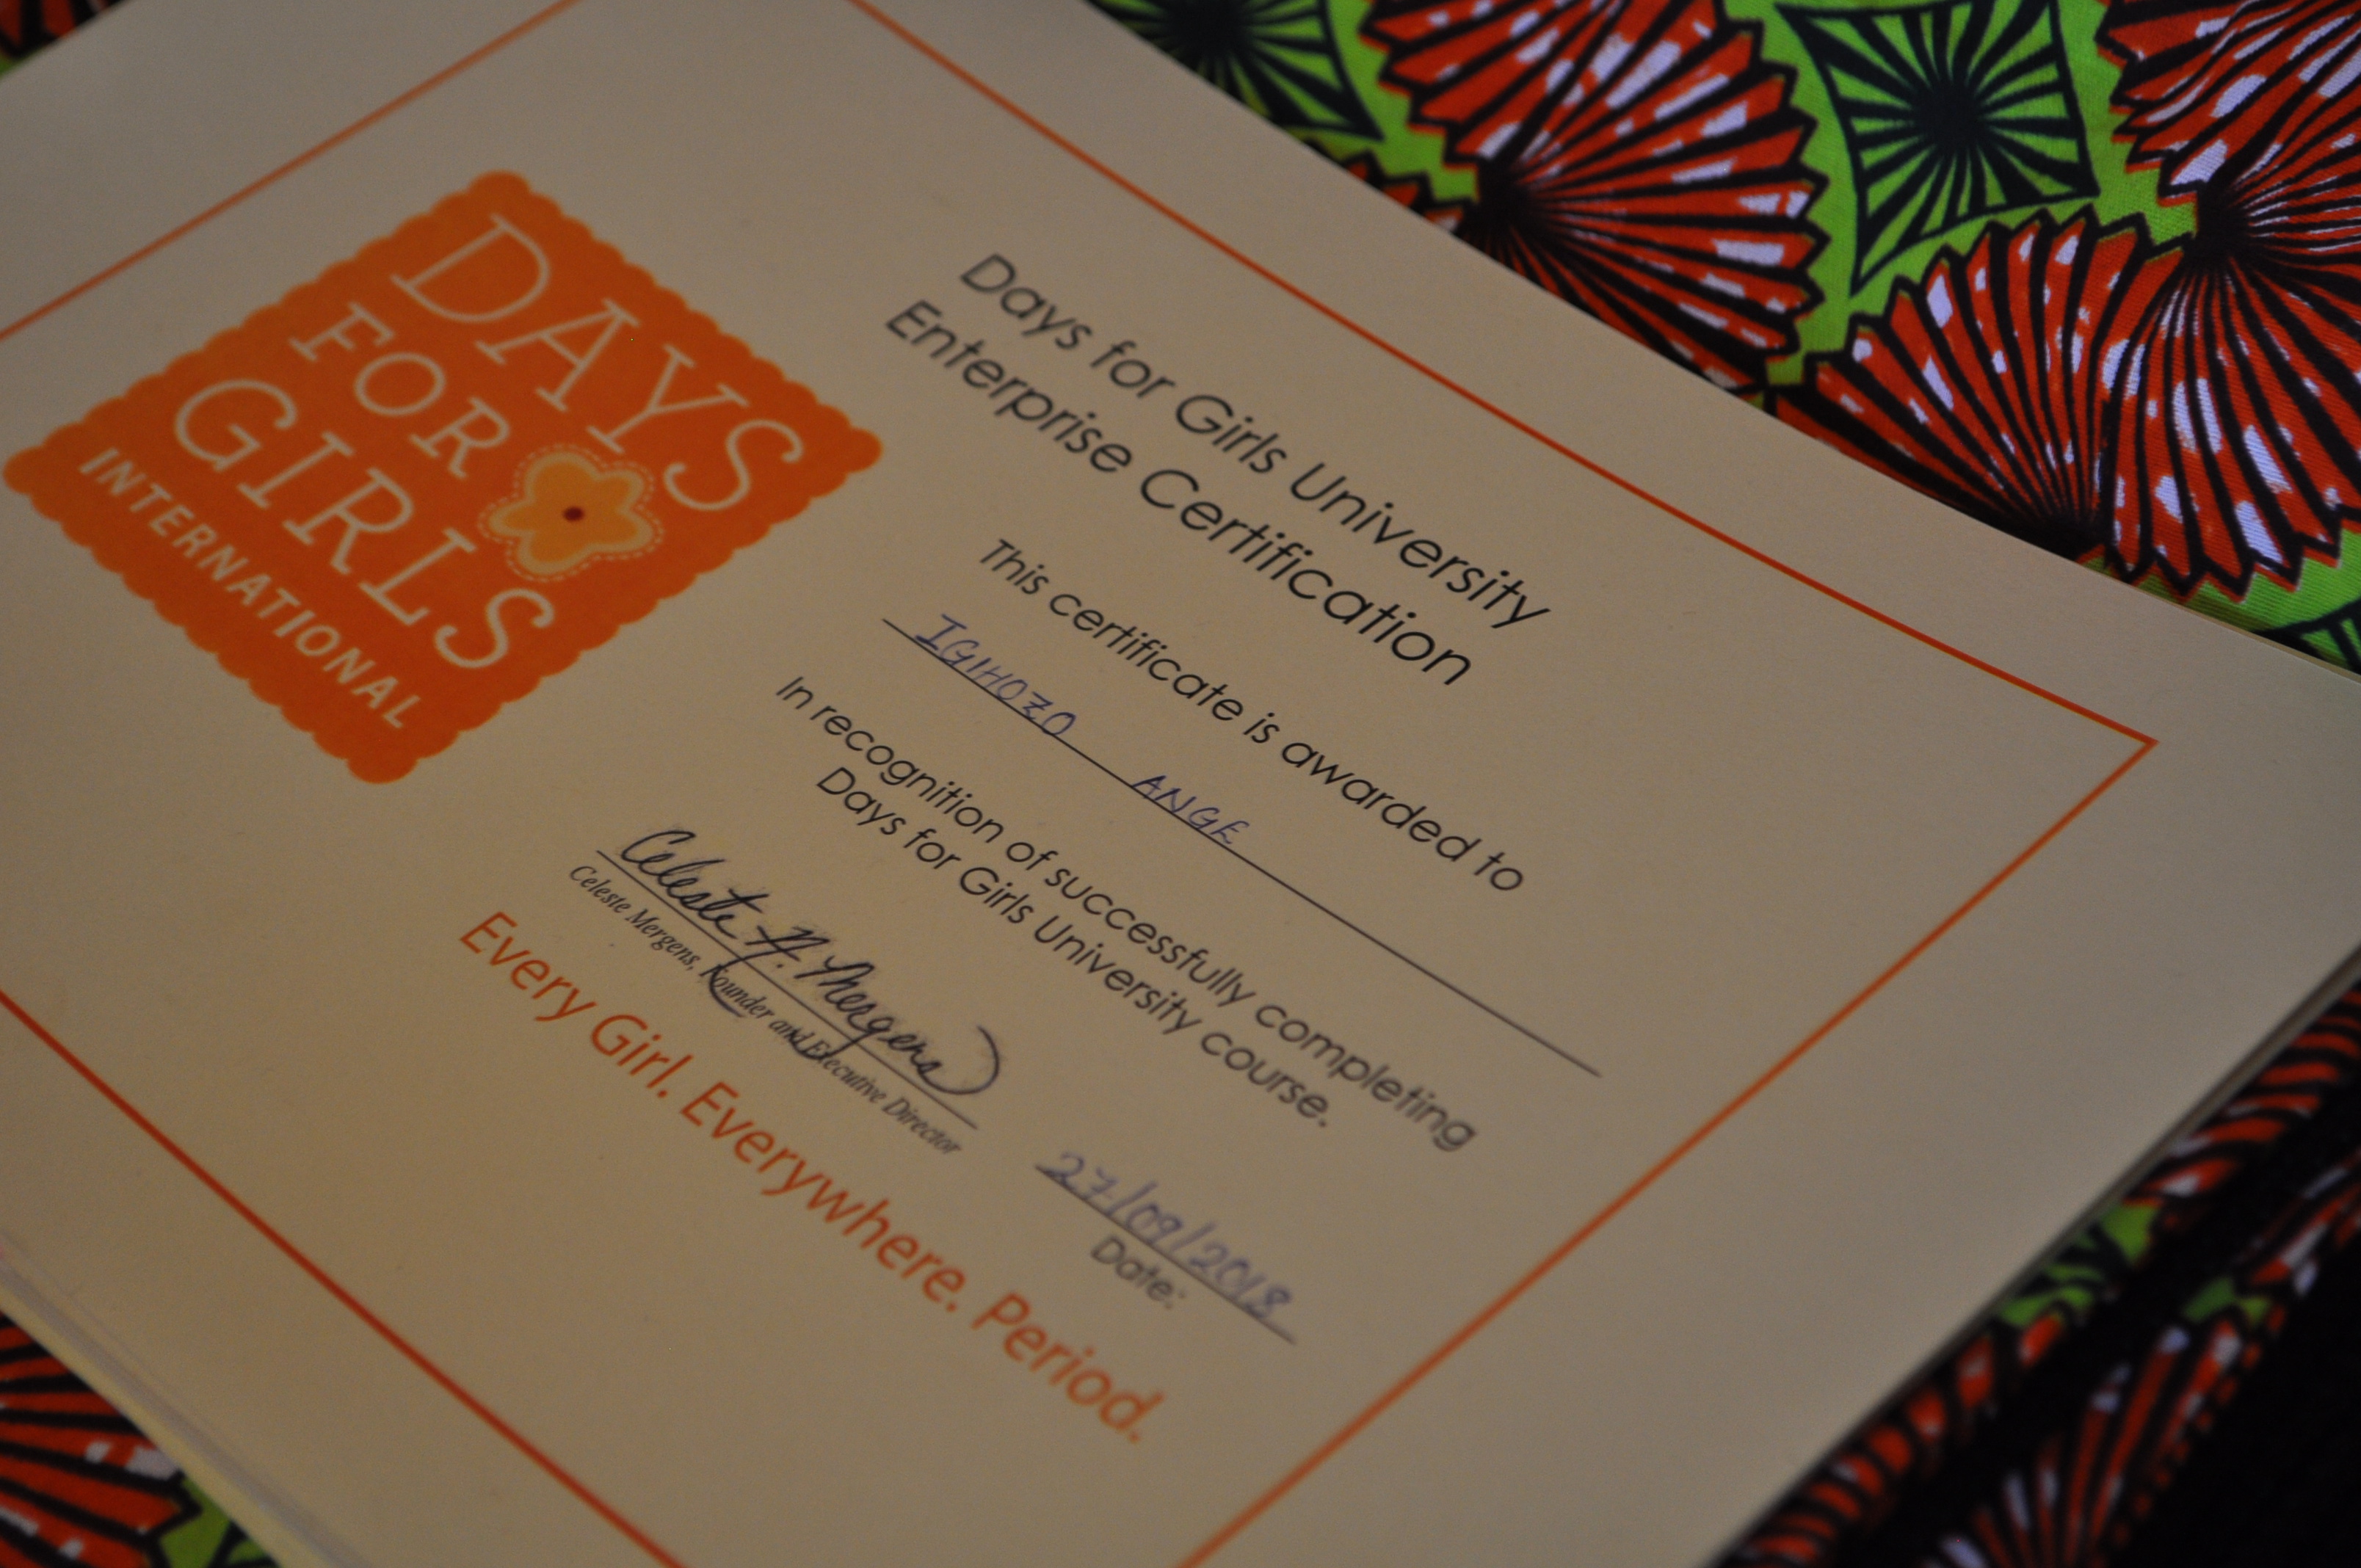 DAYS
FOR
GIRLS
INTERNATIONAL
Days for Girls University
Enterprise Certification
This certificate is awarded to
IGIHOZO ANGE
In recognition of successfully completing
Days for Girls University course.
Celeste A. Mergens
Celeste Mergens, Founder and Executive Director
27/09/2018
Date:
Every Girl. Everywhere. Period.